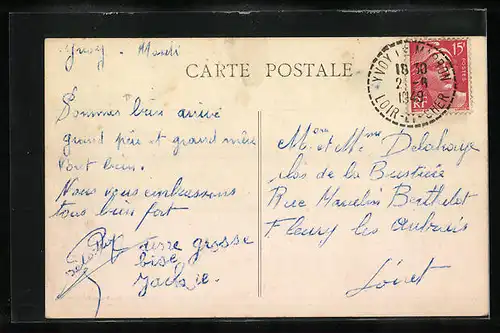 Yvoy. Mardi
CARTE POSTALE
YVOY LE MARRON
18 30
21-6
1949
LOIR-ET-CHER
15F
POSTES
RF
Sommes bien arrivé
grand père et grand mère
vont bien.
Nous vous embrassons
tous bien fort
une grosse
bise
Jackie
Mr et Mme Delahaye
clos de la Bustière
Rue Marcelin Berthelot
Fleury les Aubrais
Loiret